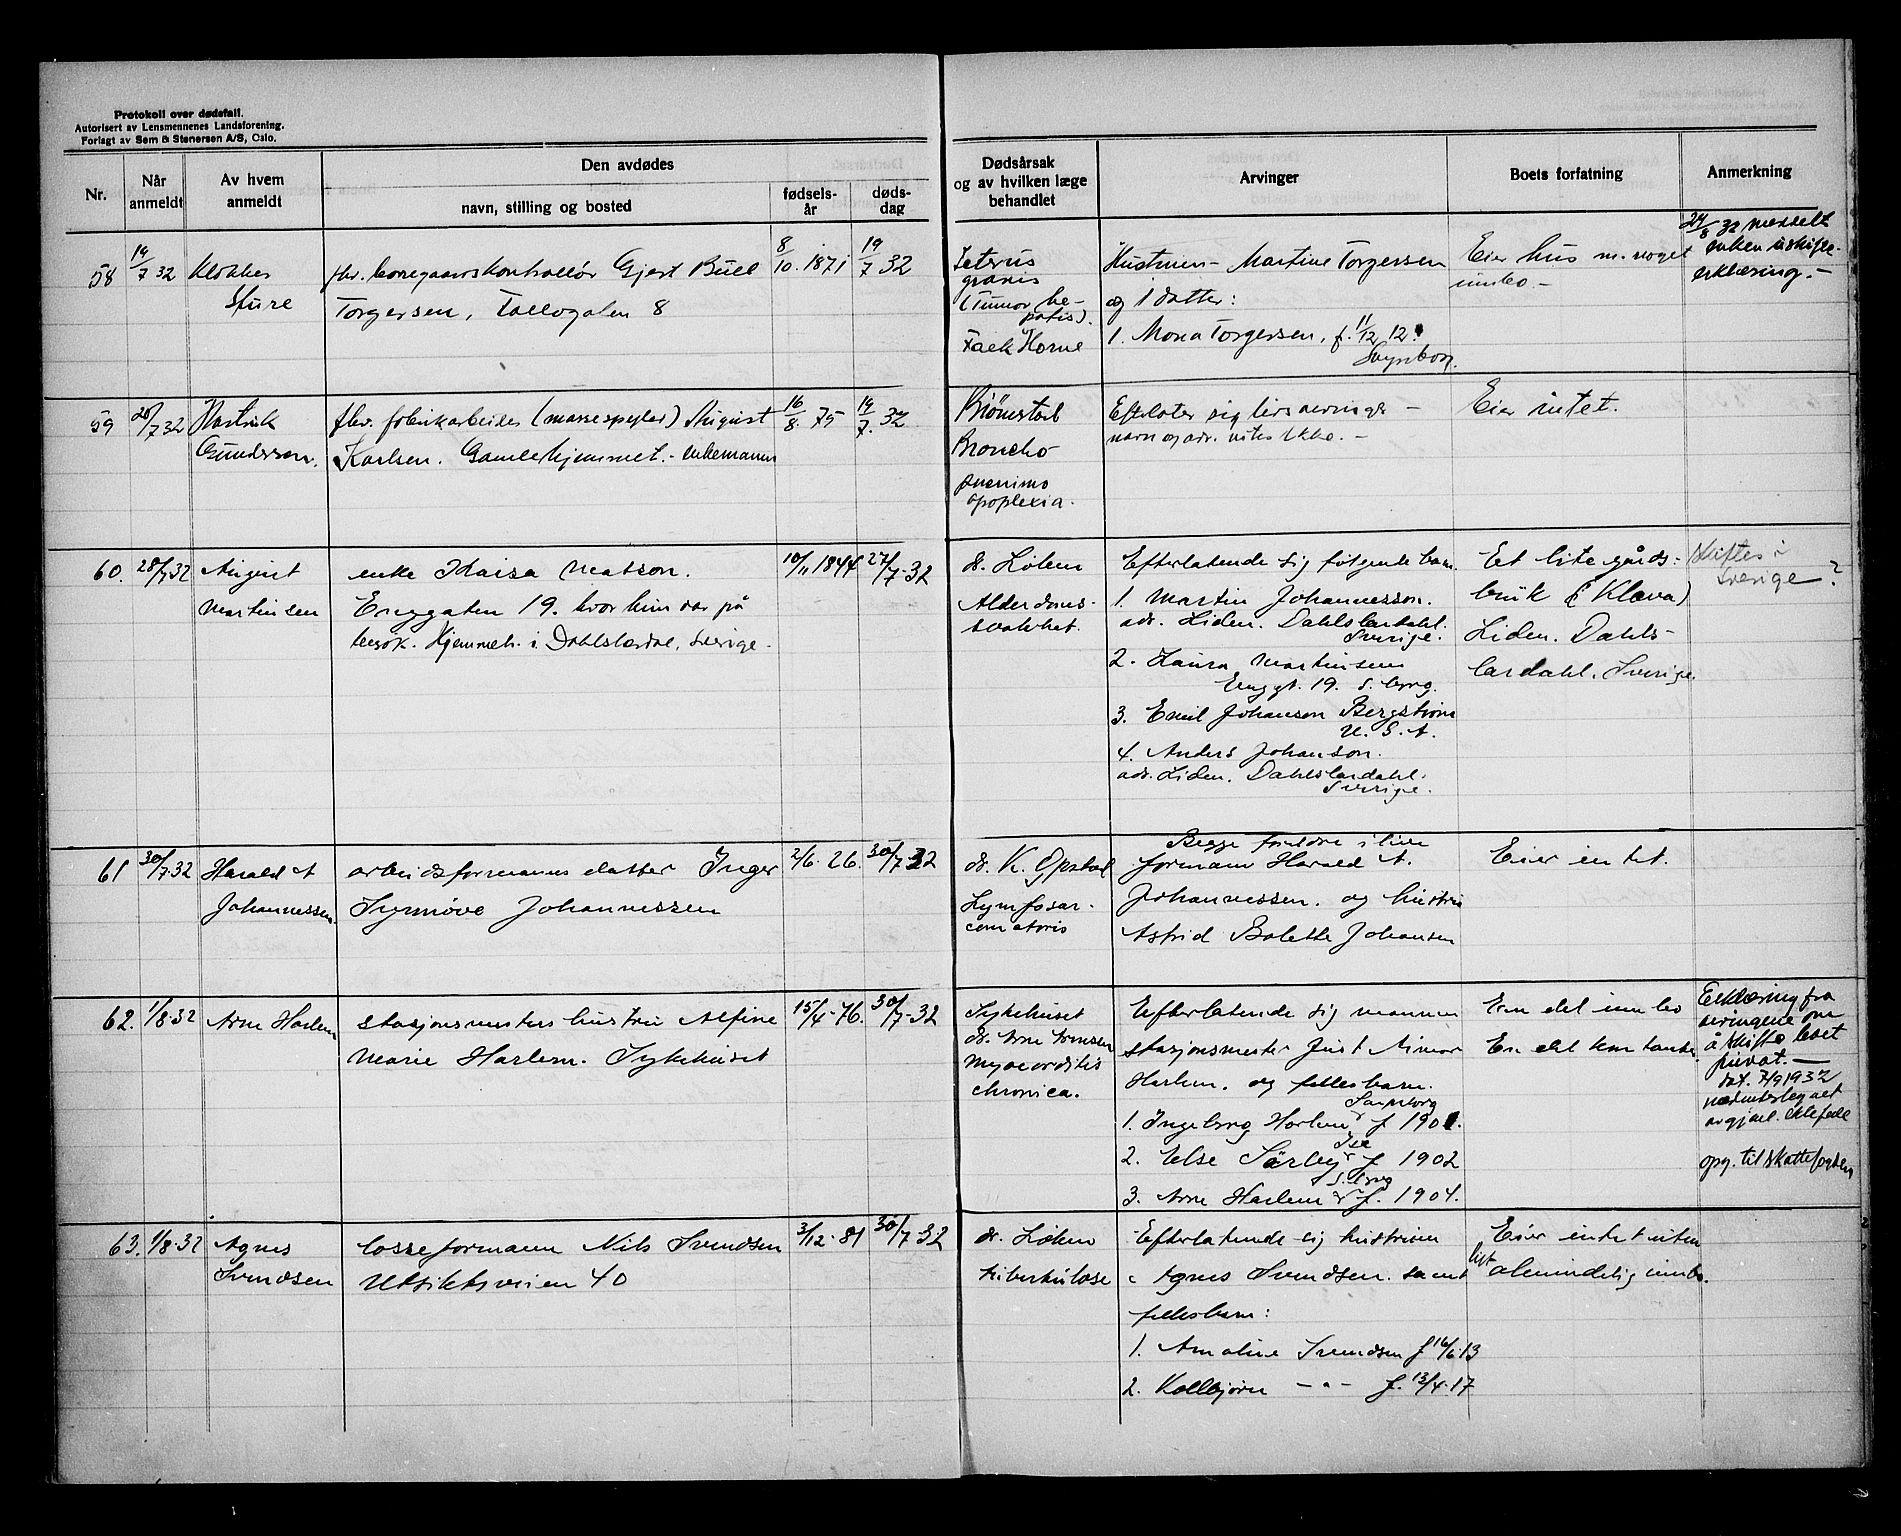 Protokoll over dødsfall.
Autorisert av Lensmennenes Landsforening.
Forlagt av Sem & Stenersen A/S, Oslo.
Nr.
Når anmeldt
Av hvem anmeldt
Den avdødes
navn, stilling og bosted
fødsels-år
døds-dag
Dødsårsak
og av hvilken læge
behandlet
Arvinger
Boets forfatning
Anmerkning
58
19/7 32
Klokker
Sture
fhv. borregaardskontrollør Gjert Bull
Torgersen,
8
8/10. 1871
19/7 32
Icterus
gravis
(Tumor he-
patis).
Horne
Hustruen - Martine Torgersen
og 1 datter:
1. Mona Torgersen, f. 11/12 12.
Eier hus m. noget
innbo.-
24/8 32 meddelt
enken uskifte-
erklæring.-
59
20/7 32
Gundersen.
fhv. fabrikarbeider August
Karlsen. Gamlehjemmet.- enkemann
16/8. 75
19/7. 32
Broncho
apoplexia.
Efterlater sig livsarvinger -
navn og adr. vites ikke. -
Eier intet.
60.
28/7 32
August
Martinsen
enke Kaisa Matson.
Enggaten 19. hvor hun var på
besøk. Hjemmeh. i Sverige.
10/11 1844
27/7-32
dr. Løken
Alderdoms-
svakhet.
Efterlatende sig følgende barn
1. Martin Johannesson.
adr. Liden. Dahlslandahl.
Sverige.
2. Laura Martinsen
Enggt. 19. S.borg.
3. Emil Johanson Bergstrøm
U. S. A.
4. Anders Johanson.
adr. Liden. Dahlslandahl.
Sverige.
Et lite gårds-
bruk (Kleva)
Liden. Dahls-
landahl. Sverige.
Skiftes i
Sverige?
61
30/7-32
Harald A
Johannessen.
arbeidsformanns datter Inger
Synnøve Johannessen
2/6. 26.
30/7-32
dr. K. Opstad
Lymfosar-
comatoris
Begge foreldre i live
formann Harald A.
Johannessen. og hustru
Astrid Bolette Johansen
Eier intet.
62.
1/8-32
Arne Harlem
stasjonsmesters hustru Alfine
Marie Harlem. Sykehuset
15/4-76.
30/7-32
Sykehuset
dr. Arne
Myocarditis
chronica.
Efterlatende sig mannen
stasjonsmester Just Aimar
Harlem. og fellesbarn.
Sarpsborg
1. Ingeborg Harlem f 1901.
2. Else Sørby f 1902
S.borg
3. Arne Harlem f. 1904.
En del innbo
En del kontanter
Erklæring fra
arvingene om
å skifte boet
privat. -
dat. 7/9 1932
opg. til skattefogden
63.
1/8-32
Agnes
Svendsen
losseformann Nils Svendsen
Utsiktsveien 40
3/12-81
30/7-32
dr. Løken
tuberkulose
Efterlatende sig hustruen
Agnes Svendsen. samt
fellesbarn:
1. Amaline Svendsen f 16/6 13
2. Kolbjørn -"- f. 13/4-17
Eier intet uten
litt alminnelig innbo.